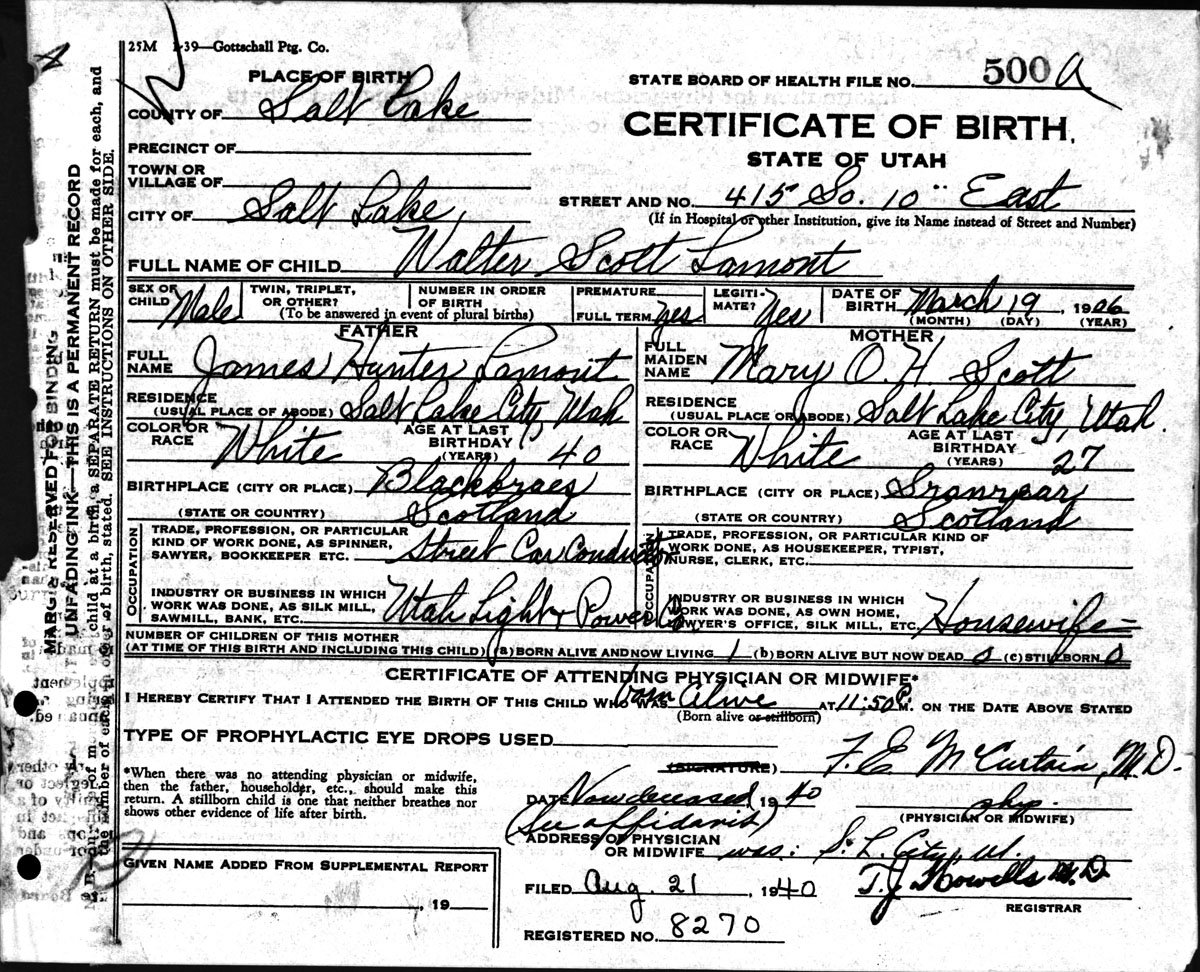 25M 1-39—Gottschall Ptg. Co.
PLACE OF BIRTH
STATE BOARD OF HEALTH FILE NO. 500 a
COUNTY OF Salt Lake
CERTIFICATE OF BIRTH
PRECINCT OF
STATE OF UTAH
TOWN OR VILLAGE OF
STREET AND NO. 415 So. 10" East
CITY OF Salt Lake,
(If in Hospital or other Institution, give its Name instead of Street and Number)
FULL NAME OF CHILD Walter Scott Lamont
SEX OF CHILD Male
TWIN, TRIPLET, OR OTHER?
NUMBER IN ORDER OF BIRTH
(To be answered in event of plural births)
PREMATURE
FULL TERM Yes
LEGITIMATE? Yes
DATE OF BIRTH March 19, 1906
(MONTH) (DAY) (YEAR)
FATHER
FULL NAME James Hunter Lamont
RESIDENCE
(USUAL PLACE OF ABODE) Salt Lake City, Utah
COLOR OR RACE White
AGE AT LAST BIRTHDAY (YEARS) 40
BIRTHPLACE (CITY OR PLACE) Blackbraes
(STATE OR COUNTRY) Scotland
OCCUPATION
TRADE, PROFESSION, OR PARTICULAR
KIND OF WORK DONE, AS SPINNER,
SAWYER, BOOKKEEPER ETC. Street Car Conductor
INDUSTRY OR BUSINESS IN WHICH
WORK WAS DONE, AS SILK MILL,
SAWMILL, BANK, ETC. Utah Light & Power Co.
MOTHER
FULL MAIDEN NAME Mary O. H. Scott
RESIDENCE
(USUAL PLACE OR ABODE) Salt Lake City, Utah.
COLOR OR RACE White
AGE AT LAST BIRTHDAY (YEARS) 27
BIRTHPLACE (CITY OR PLACE)
(STATE OR COUNTRY) Scotland
OCCUPATION
TRADE, PROFESSION, OR PARTICULAR KIND OF
WORK DONE, AS HOUSEKEEPER, TYPIST,
NURSE, CLERK, ETC.
INDUSTRY OR BUSINESS IN WHICH
WORK WAS DONE, AS OWN HOME,
LAWYER'S OFFICE, SILK MILL, ETC. Housewife
NUMBER OF CHILDREN OF THIS MOTHER
(AT TIME OF THIS BIRTH AND INCLUDING THIS CHILD) (a) BORN ALIVE AND NOW LIVING 1 (b) BORN ALIVE BUT NOW DEAD 0 (c) STILLBORN 0
CERTIFICATE OF ATTENDING PHYSICIAN OR MIDWIFE*
I HEREBY CERTIFY THAT I ATTENDED THE BIRTH OF THIS CHILD WHO WAS born Alive AT 11:50 P. M. ON THE DATE ABOVE STATED
(Born alive or stillborn)
TYPE OF PROPHYLACTIC EYE DROPS USED
(SIGNATURE) F. E. McCurtain, M.D.
*When there was no attending physician or midwife,
then the father, householder, etc., should make this
return. A stillborn child is one that neither breathes nor
shows other evidence of life after birth.
DATE Now deceased, 1940
phys.
(PHYSICIAN OR MIDWIFE)
(See affidavis)
ADDRESS OF PHYSICIAN
OR MIDWIFE was: S. L. City, Ut.
GIVEN NAME ADDED FROM SUPPLEMENTAL REPORT
, 19
FILED Aug. 21, 1940
T. J. Howells M.D.
REGISTRAR
REGISTERED NO. 8270
MARGIN RESERVED FOR BINDING
UNFADING INK—THIS IS A PERMANENT RECORD
child at a birth, a SEPARATE RETURN must be made for each, and
the number of each, in order of birth, stated. SEE INSTRUCTIONS ON OTHER SIDE.